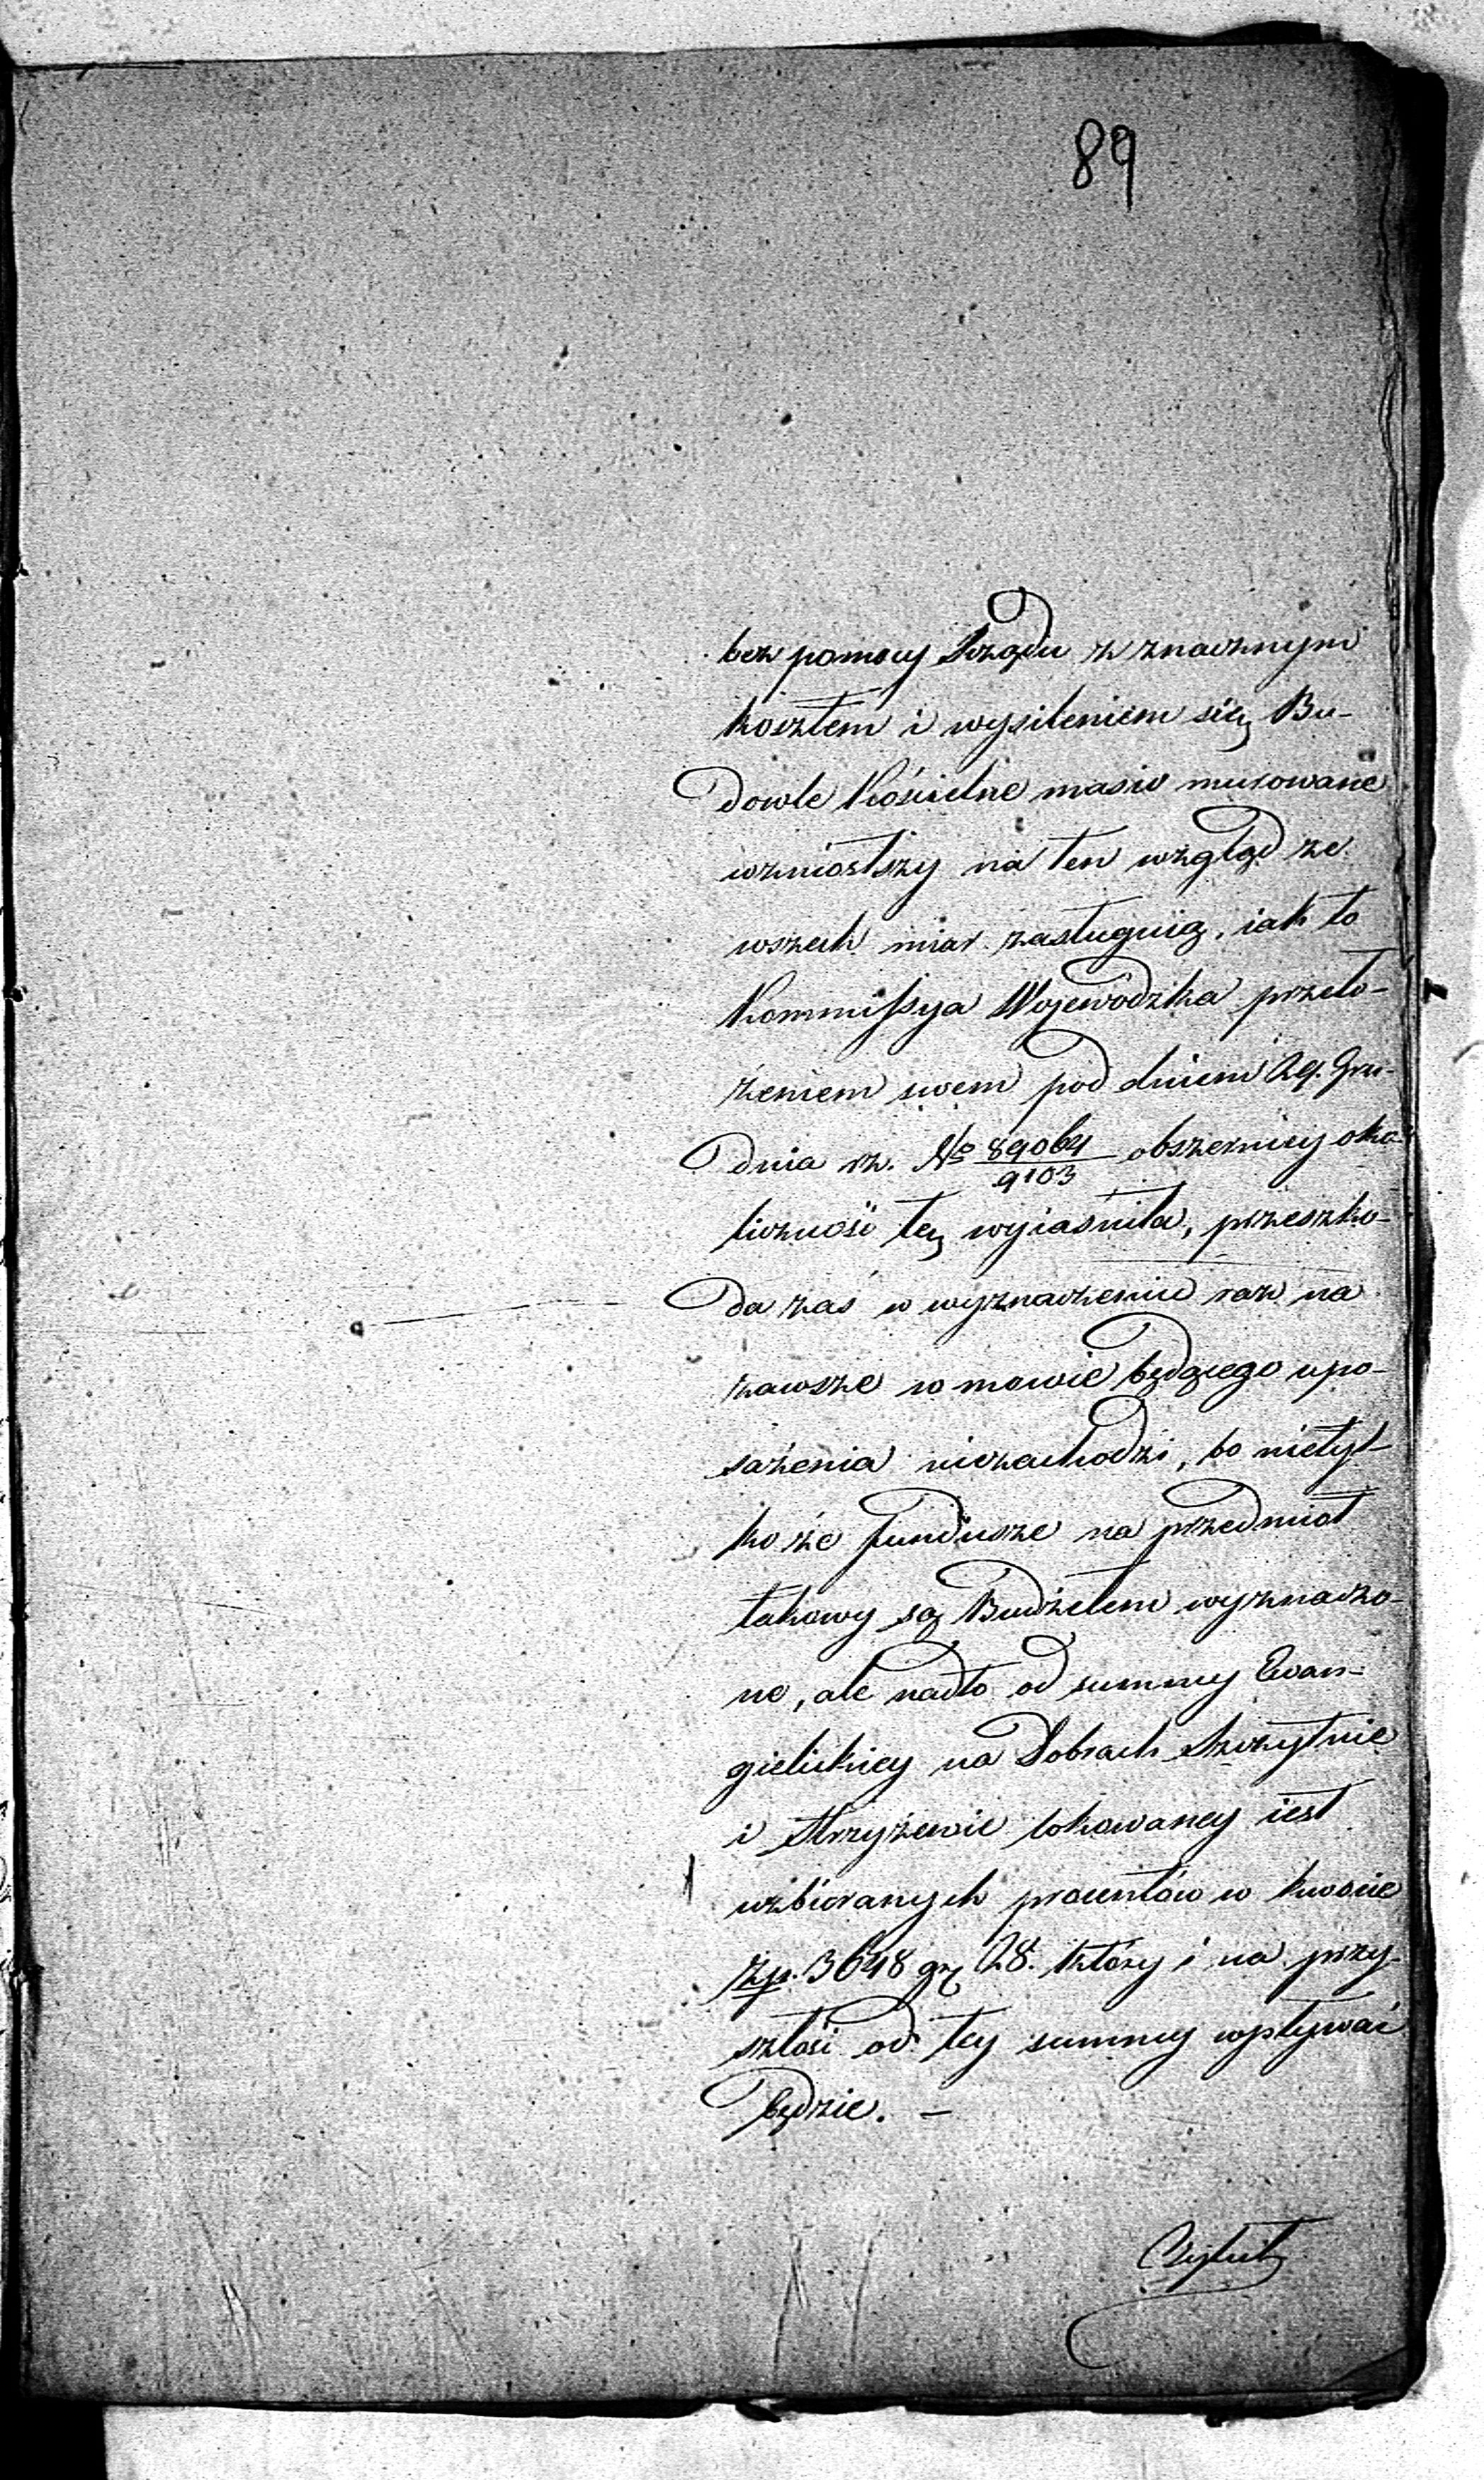 89
bez pomocy Rządu z znacznym
kosztem i wysileniem się Bu-
dowle Kościelne masiv murowane
wzniosłszy na ten wzgląd ze
wszech miar zasługuią, iak to
Kommissya Wojewódzka przeło-
żeniem swem pod dniem 29. Gru-
dnia rz. No 89064/9103 obszerniey oko-
liczność tę wyiaśniła, przeszko-
da zaś w wyznaczeniu raz na
zawsze w mowie będącego upo-
sażenia niezachodzi, bo nietyl-
ko że fundusze na przedmiot
takowy są Budżetem wyznaczo-
ne, ale nadto od summy Ewan-
gielickiey na Dobrach Szczytnie
i Strzyżewie lokowaney iest
uzbieranych procentów w kwocie
Złp. 3648 gr 28. który i na przy-
szłość od tey summy wpływać
będzie. —